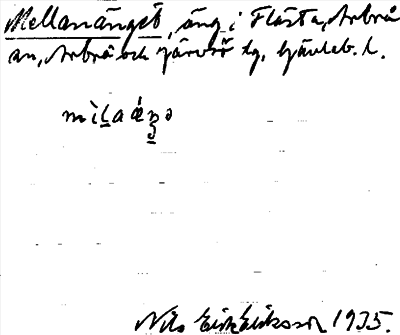 Mellanänget, äng i Flästa, Arbrå
sn, Arbrå och Järvsö tg, Gävleb. l.
Nils Erik Eriksson 1935.